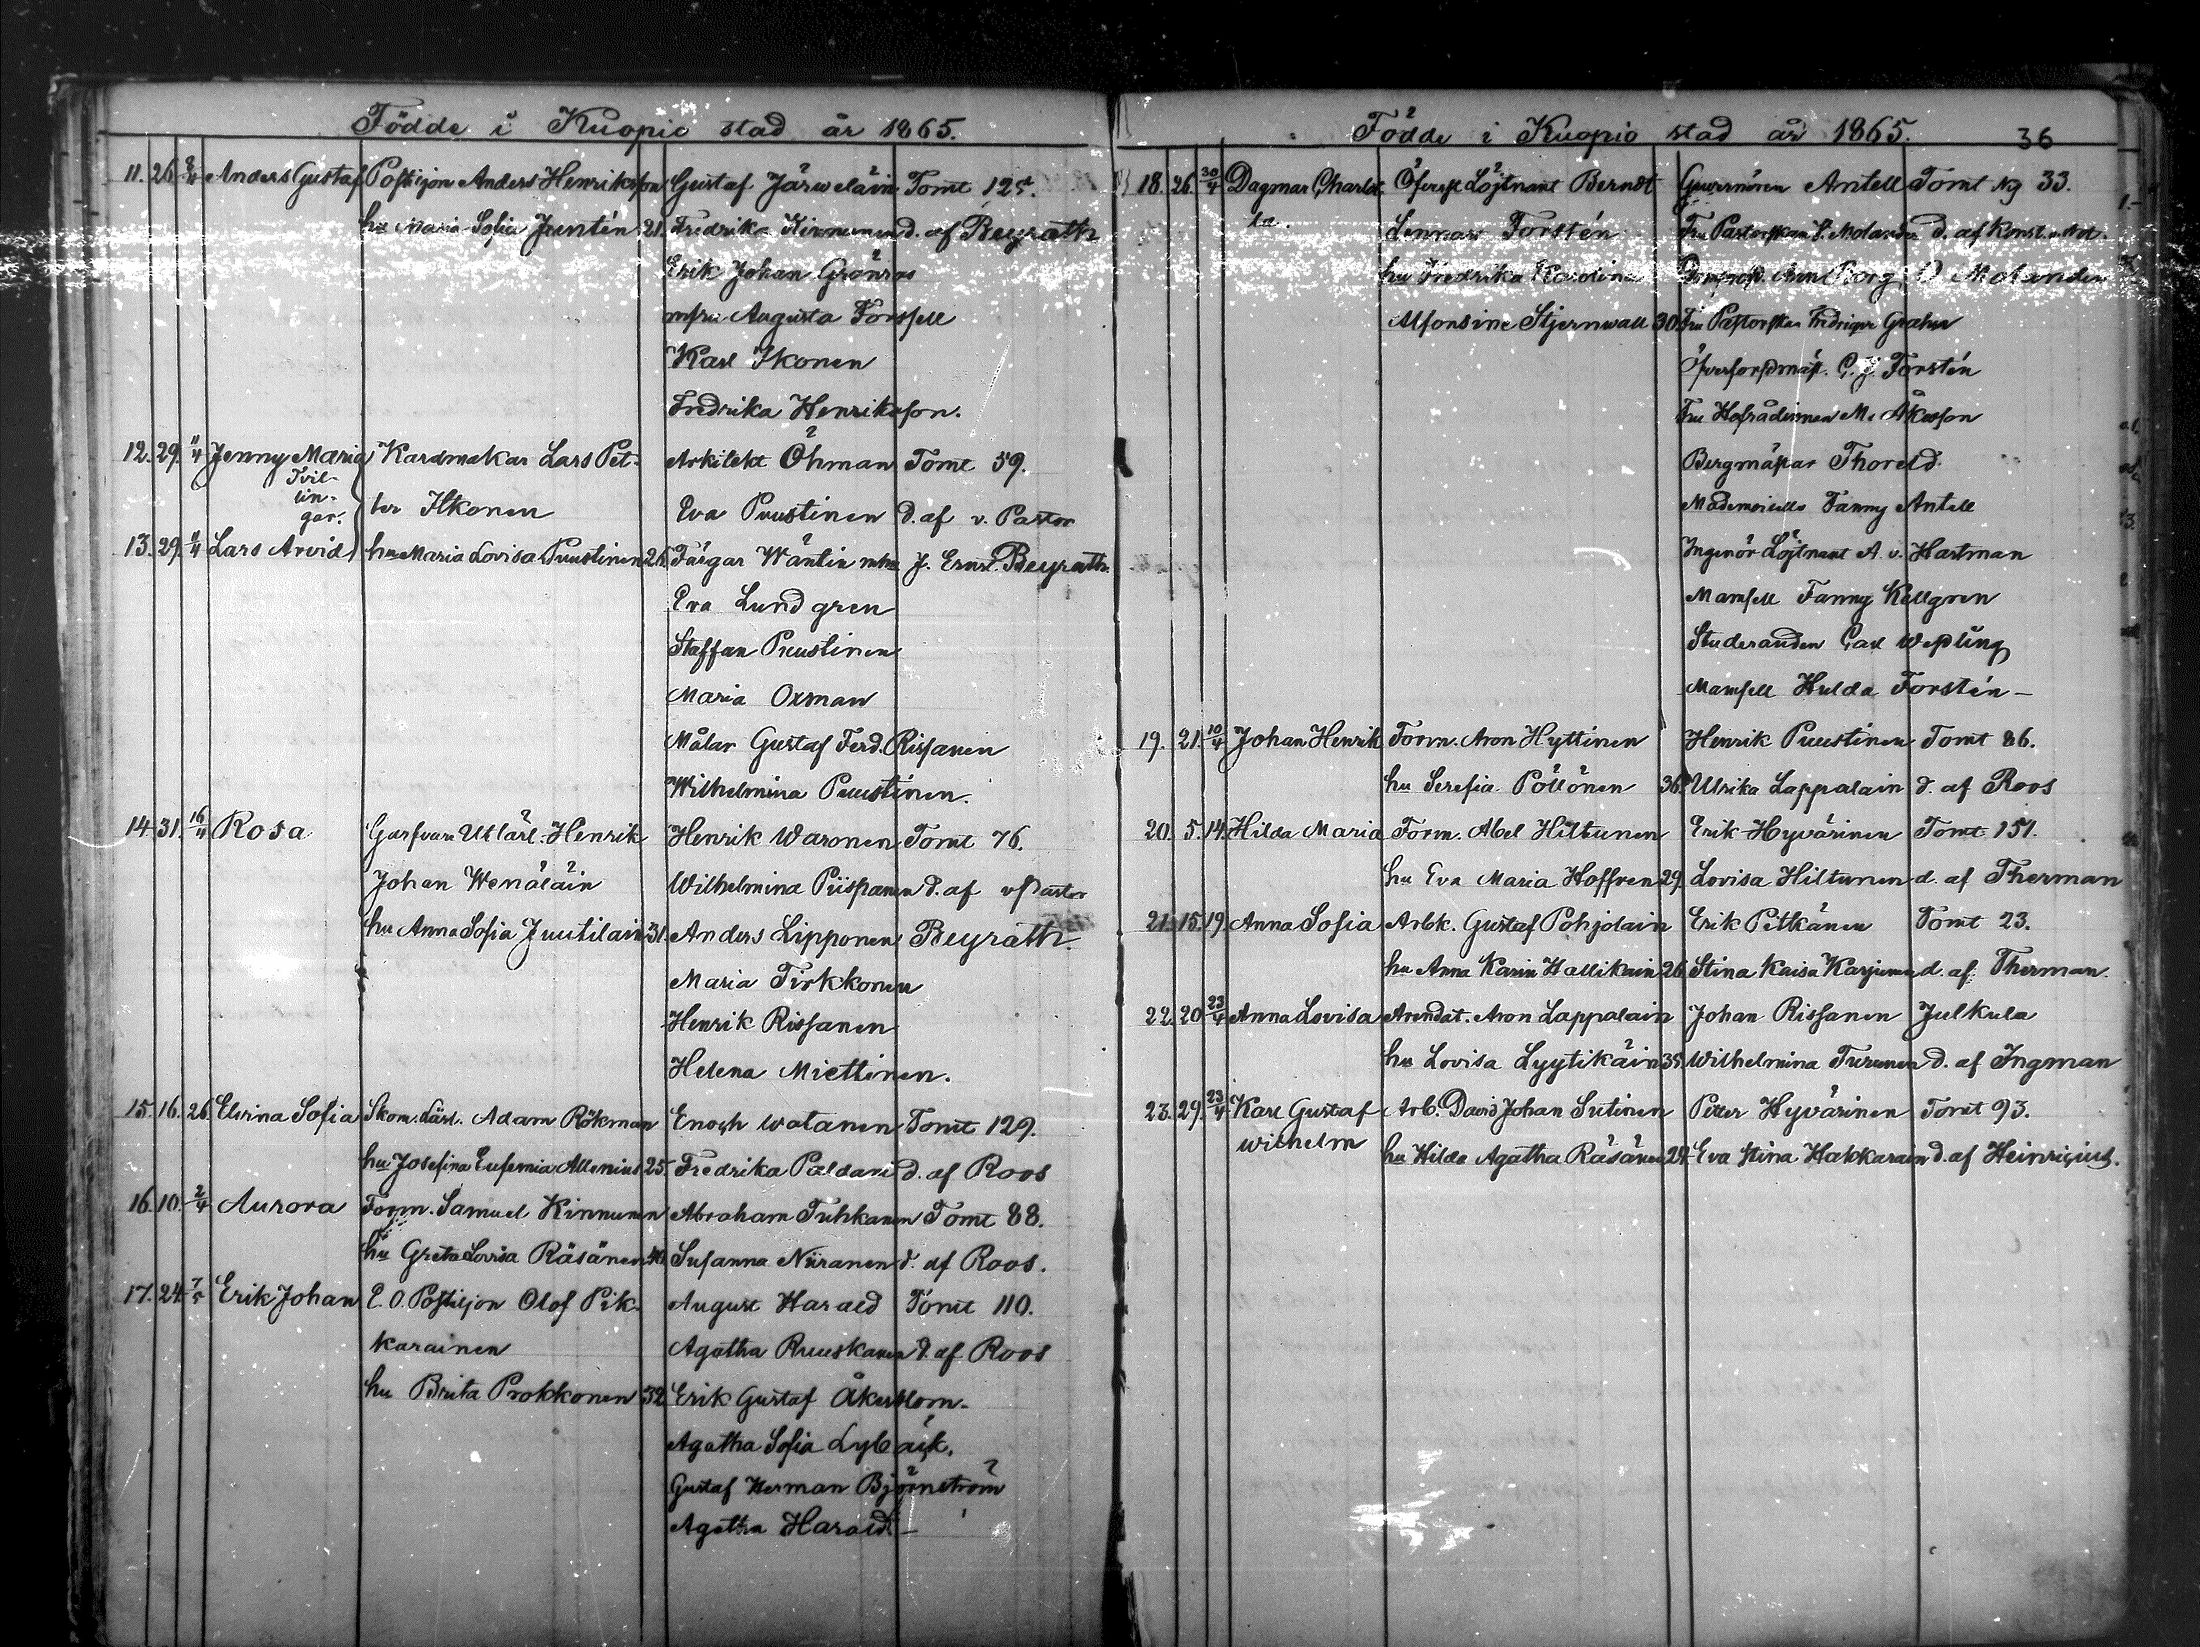 Födde i Kuopio stad år 1865.
11. 26. Anders Gustaf Postiljon Anders Henriksson Gustaf Järweläin Tomt 125.
hu Maria Sofia Juntén 21. Fredrika Kinnunen d. af Beyrath
Erik Johan Grönros
mfru Augusta Forssell
Karl Ikonen
Fredrika Henriksson.
12. 29. 11/4 Jenny Maria Kardmakar Lars Pet- Arkitekt Öhman Tomt 59.
Tvil-
lin-
gar.
ter Itkonen Eva Puustinen d. af v. Pastor
13. 29. 11/4 Lars Arvid hu Maria Lovisa Puustinen 26. Färgar Wäntin J. Ernst Beyrath.
Eva Lundgren
Staffan Puustinen
Maria Oxman
Målar Gustaf Ferd. Rissanen
Wilhelmina Puustinen.
14. 31. 16/4 Rosa Garfvare Utlärl. Henrik Henrik Waronen Tomt 76.
Johan Wenäläin Wilhelmina Piispanen d. af v Pastor
hu Anna Sofia Juutilain 31. Anders Lipponen Beyrath.
Maria Tirkkonen
Henrik Rissanen
Helena Miettinen.
15. 16. 26. Elvina Sofia Skom. Lärl. Adam Rökman Enoch Watanen Tomt 129.
hu Josefina Eufemia Allenius 25. Fredrika Paldani d. af Roos
16. 10. 2/4 Aurora Form. Samuel Kinnunen Abraham Tuhkanen Tomt 88.
hu Greta Lovisa Räsänen 40. Susanna Niiranen d. af Roos.
17. 24. 7/5 Erik Johan E. O. Postiljon Olof Pik- August Harald Tomt 110.
karainen Agatha Ruuskanen d. af Roos
hu Brita Prokkonen 32 Erik Gustaf Åkerblom.
Agatha Sofia Lybäck.
Gustaf Herman Björnström
Agatha Harald. –
Födde i Kuopio stad år 1865. 36
18. 26. 30/4 Dagmar Charlot- Öferst Löjtnant Berndt Guvernören Antell Tomt No 33.
ta. Lennart Forstén Fru Pastorskan Molander d. af Konst. Not.
hu Fredrika Karolina Borg Molander
Alfonsine Stjernwall 30. Fru Pastorskan Grahn
Öfverforstmäst. C. J. Forstén
Fru Hofrådinnan M. Åkesson
Bergmästar Thoreld
Mademoiselle Fanny Antell
Ingeniör Löjtnant A. v. Hartman
Mamsell Fanny Kellgren
Studeranden Carl Wepling
Mamsell Hulda Forstén –
19. 21. 10/4 Johan Henrik Form. Aron Hyttinen Henrik Puustinen Tomt 86.
hu Serefia Pöllönen 36. Ulrika Lappalain d. af Roos
20. 5. 14. Hilda Maria Form. Abel Hiltunen Erik Hyvärinen Tomt 151.
hu Eva Maria Hoffren 29. Lovisa Hiltunen d. af Therman
21. 15. 19. Anna Sofia Arbk. Gustaf Pohjolain Erik Pitkänen Tomt 23.
hu Anna Karin Hallikain 26. Stina Kaisa Karjunen d. af Therman.
22. 20. 23/4 Anna Lovisa Arendat. Aron Lappalain Johan Rissanen Julkula
hu Lovisa Lyytikäin 35. Wilhelmina Turunen d. af Ingman
23. 29. 23/4 Karl Gustaf Arb. David Johan Sutinen Petter Hyvärinen Tomt 93.
Wilhelm hu Hilda Agatha Räsänen 24. Eva Stina Hakkarain d. af Heinricius.